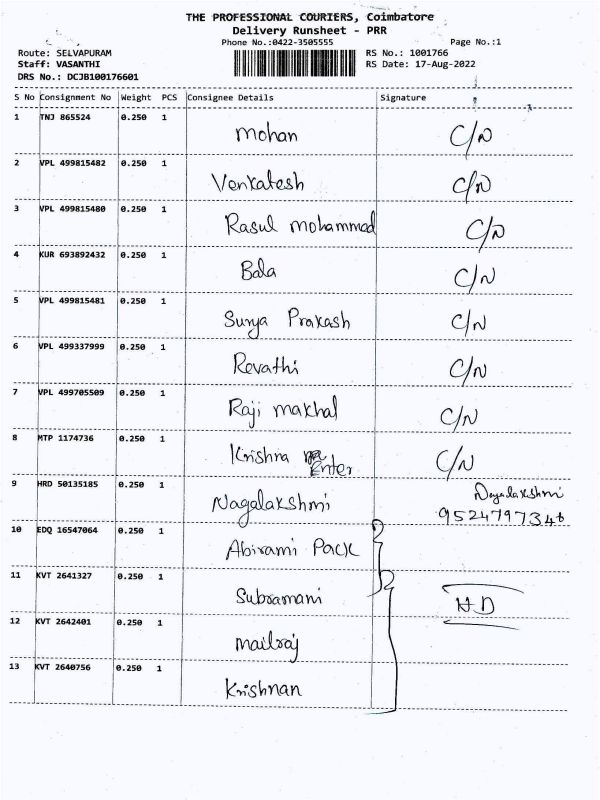 THE PROFESSIONAL COURIERS, Coimbatore
Delivery Runsheet - PRR
Phone No.:0422-3505555 Page No.:1
Route: SELVAPURAM RS No.: 1001766
Staff: VASANTHI RS Date: 17-Aug-2022
DRS No.: DCJB100176601
S No Consignment No Weight PCS Consignee Details Signature
1 TNJ 865524 0.250 1 Mohan C/N
2 VPL 499815482 0.250 1 Venkatesh C/N
3 VPL 499815480 0.250 1 Rasul mohammed C/N
4 KUR 693892432 0.250 1 Bala C/N
5 VPL 499815481 0.250 1 Surya Prakash C/N
6 VPL 499337999 0.250 1 Revathi C/N
7 VPL 499705509 0.250 1 Raji makhal C/N
8 MTP 1174736 0.250 1 Krishna Enter C/N
9 HRD 50135185 0.250 1 Nagalakshmi
10 EDQ 16547064 0.250 1 Abirami Pack
11 KVT 2641327 0.250 1 Subramani HD
12 KVT 2642401 0.250 1 mailraj
13 KVT 2640756 0.250 1 Krishnan